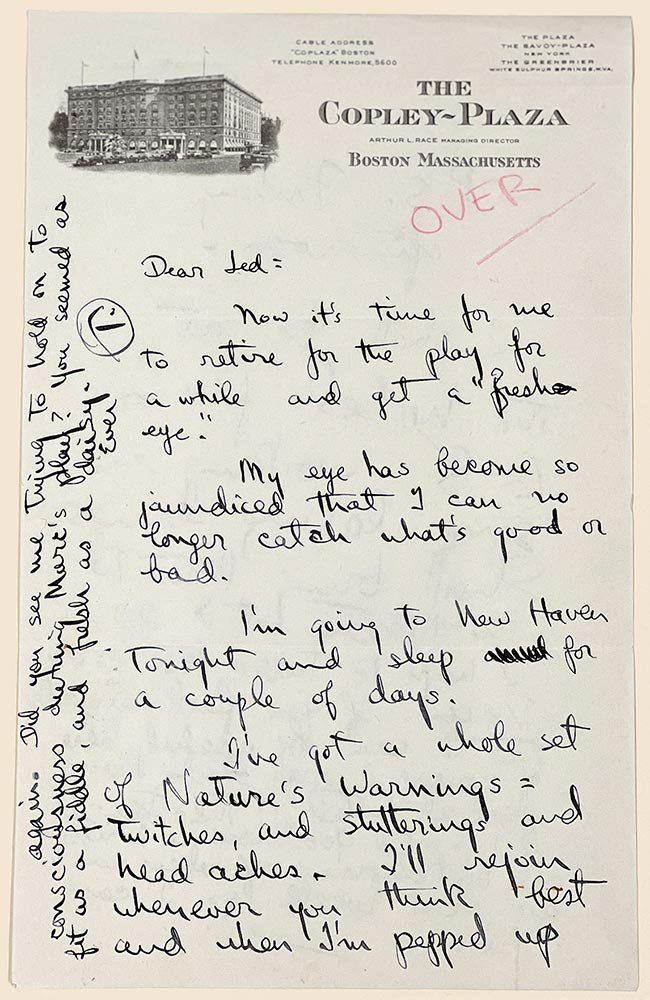 CABLE ADDRESS
"COPLAZA" BOSTON
TELEPHONE KENMORE, 5600
THE PLAZA
THE SAVOY-PLAZA
NEW YORK
THE GREENBRIER
WHITE SULPHUR SPRINGS, W.VA.
THE
COPLEY~PLAZA
ARTHUR L. RACE MANAGING DIRECTOR
BOSTON MASSACHUSETTS
OVER
1.
Dear Jed =
Now it's time for me
to retire for the play for
a while and get a "fresh
eye."
My eye has become so
jaundiced that I can no
longer catch what's good or
bad.
I'm going to New Haven
Tonight and sleep for
a couple of days.
I've got a whole set
of Nature's Warnings =
twitches, and stutterings and
head aches. I'll rejoin
whenever you think best
and when I'm pepped up
again. Did you see me trying to hold on to
consciousness during Marc's play? You seemed as
fit as a fiddle and fresh as a daisy.
Ever